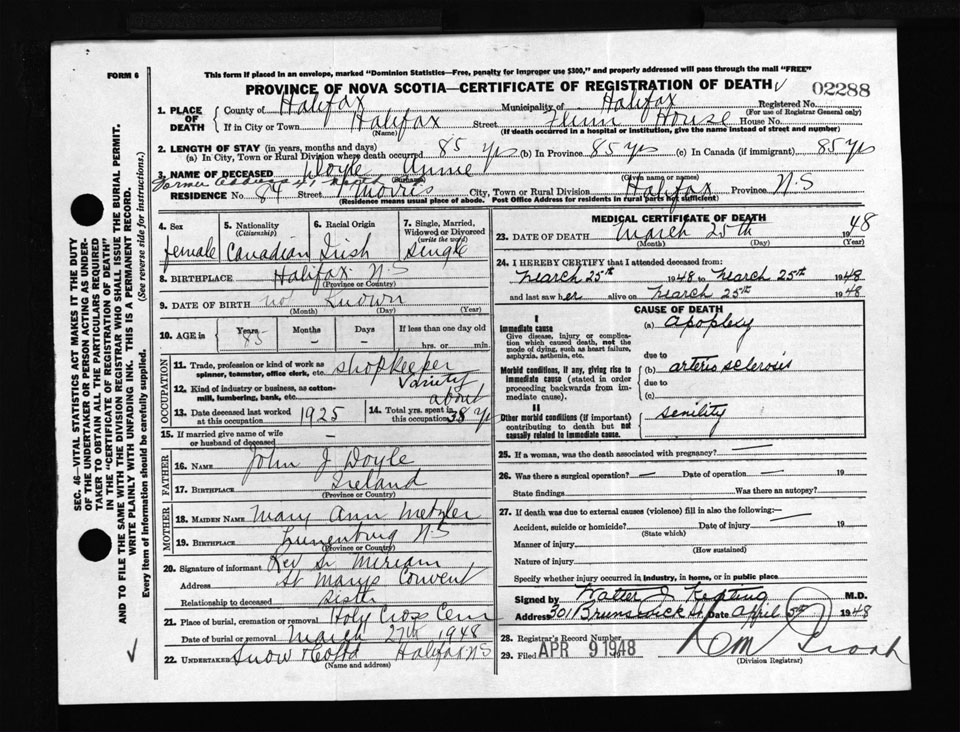 FORM 6
This form if placed in an envelope, marked "Dominion Statistics—Free, penalty for improper use $300," and properly addressed will pass through the mail "FREE"
PROVINCE OF NOVA SCOTIA—CERTIFICATE OF REGISTRATION OF DEATH
02288
1. PLACE OF DEATH
County of Halifax Municipality of Halifax Registered No.
(For use of Registrar General only)
If in City or Town Halifax Street House House No.
(Name) (If death occurred in a hospital or institution, give the name instead of street and number)
2. LENGTH OF STAY (in years, months and days)
(a) In City, Town or Rural Division where death occurred 85 yrs (b) In Province 85 yrs (c) In Canada (if immigrant) 85 yrs
3. NAME OF DECEASED Doyle Annie
(Surname) (Given name or names)
Former address
RESIDENCE No. 84 Street Morris City, Town or Rural Division Halifax Province N.S
(Residence means usual place of abode. Post Office Address for residents in rural parts not sufficient)
4. Sex female
5. Nationality (Citizenship) Canadian
6. Racial Origin Irish
7. Single, Married, Widowed or Divorced (write the word) Single
8. BIRTHPLACE Halifax N.S
(Province or Country)
9. DATE OF BIRTH not known
(Month) (Day) (Year)
10. AGE in Years 85 Months – Days – If less than one day old
hrs. or min.
OCCUPATION
11. Trade, profession or kind of work as spinner, teamster, office clerk, etc. shopkeeper
12. Kind of industry or business, as cotton-mill, lumbering, bank, etc. Variety
13. Date deceased last worked at this occupation 1925
14. Total yrs. spent in this occupation about 38 y
15. If married give name of wife or husband of deceased –
FATHER
16. NAME John J Doyle
17. BIRTHPLACE Ireland
(Province or Country)
MOTHER
18. MAIDEN NAME Mary Ann Metzler
19. BIRTHPLACE Lunenburg N S
(Province or Country)
20. Signature of informant Rev Sr Miriam
Address St Marys Convent
Relationship to deceased sister
21. Place of burial, cremation or removal Holy Cross Cem
Date of burial or removal March 27th 1948
22. UNDERTAKER Snow & Co Ltd Halifax N S
(Name and address)
MEDICAL CERTIFICATE OF DEATH
23. DATE OF DEATH March 25th 1948
(Month) (Day) (Year)
24. I HEREBY CERTIFY that I attended deceased from:
March 25th 1948 to March 25th 1948
and last saw her alive on March 25th 1948
CAUSE OF DEATH
I
Immediate cause
Give disease, injury or complication which caused death, not the mode of dying, such as heart failure, asphyxia, asthenia, etc.
(a) apoplexy
due to
Morbid conditions, if any, giving rise to immediate cause (stated in order proceeding backwards from immediate cause).
(b) arterio sclerosis
due to
(c)
II
Other morbid conditions (if important) contributing to death but not causally related to immediate cause.
senility
25. If a woman, was the death associated with pregnancy? –
26. Was there a surgical operation? – Date of operation – 19
State findings Was there an autopsy?
27. If death was due to external causes (violence) fill in also the following:
Accident, suicide or homicide? Date of injury 19
(State which)
Manner of injury
(How sustained)
Nature of injury
Specify whether injury occurred in industry, in home, or in public place
Signed by Walter J. Keating M.D.
Address 301 Brunswick St Date April 5th 1948
28. Registrar's Record Number
29. Filed APR 9 1948
(Division Registrar)
SEC. 46—VITAL STATISTICS ACT MAKES IT THE DUTY
OF THE UNDERTAKER OR PERSON ACTING AS UNDERTAKER TO OBTAIN ALL THE PARTICULARS REQUIRED
IN THE "CERTIFICATE OF REGISTRATION OF DEATH"
AND TO FILE THE SAME WITH THE DIVISION REGISTRAR WHO SHALL ISSUE THE BURIAL PERMIT.
WRITE PLAINLY WITH UNFADING INK. THIS IS A PERMANENT RECORD.
Every item of information should be carefully supplied. (See reverse side for instructions.)